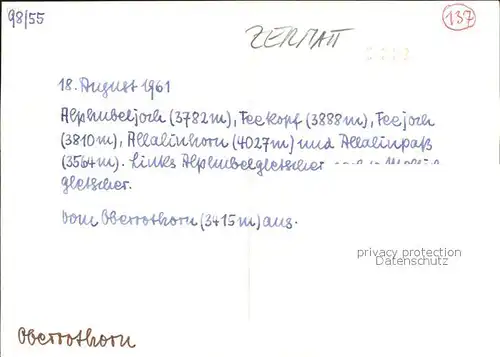 98/55
ZERMATT
137
18. August 1961
Alphubeljoch (3782m), Feekopf (3888m), Feejoch
(3810m), Allalinhorn (4027m) und Allalinpaß
(3564m). Links Alphubelgletscher
gletscher.
vom Oberrothorn (3415m) aus.
privacy protection
Datenschutz
Oberrothorn